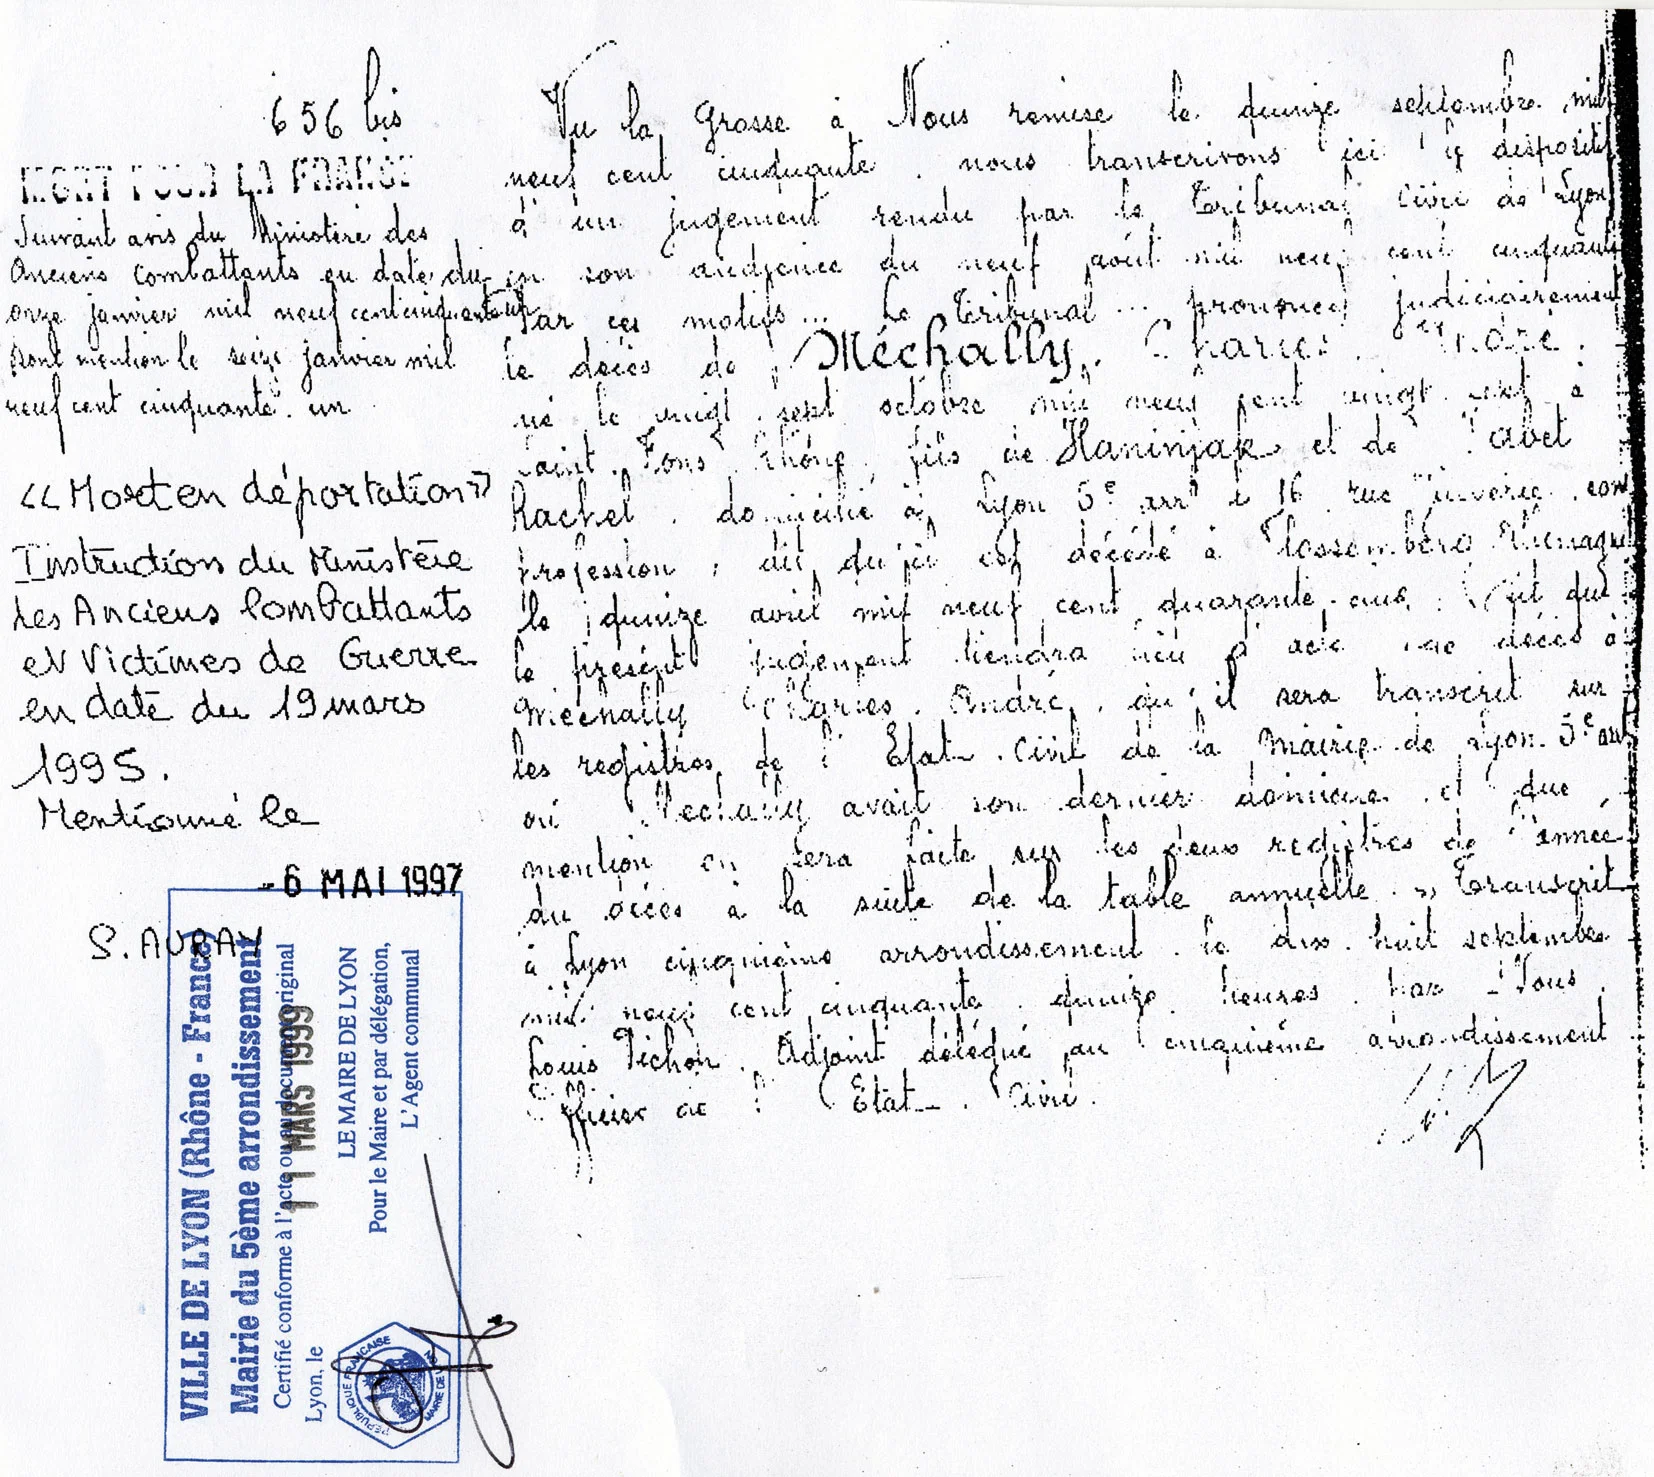 656 bis
MORT POUR LA FRANCE
Suivant avis du Ministère des
Anciens Combattants en date du
onze janvier mil neuf cent cinquante un
Dont mention le seize janvier mil
neuf cent cinquante. un
<<Mort en déportation>>
Instruction du Ministère
des Anciens Combattants
et Victimes de Guerre
en date du 19 mars
1995.
Mentionné le
-6 MAI 1997
S. AURAY
Vu la Grosse à Nous remise le quinze septembre mil
neuf cent cinquante, nous transcrivons ici le dispositif
d'un jugement rendu par le Tribunal Civil de Lyon
en son audience du neuf août mil neuf cent cinquante
Par ces motifs... Le Tribunal... prononce judiciairement
le décès de Méchally, Charles, André,
né le vingt sept octobre mil neuf cent vingt à
Saint Fons Rhône, fils de Haninjak et de
Rachel, domicilié à Lyon 5e arrt 16 rue
profession, dit qu'il est décédé à
le quinze avril mil neuf cent quarante cinq. Dit que
le présent jugement tiendra lieu d'acte de décès à
Méchally Charles, André, qu'il sera transcrit sur
les registres de l'Etat-Civil de la Mairie de Lyon 5e arrt
où Méchally avait son dernier domicile et que
mention en sera faite sur les deux registres de l'année
du décès à la suite de la table annuelle.» Transcrit
à Lyon cinquième arrondissement le dix-huit septembre
mil neuf cent cinquante, quinze heures, par Nous,
Louis Pichon, Adjoint délégué au cinquième arrondissement
Officier de l'Etat-Civil.
VILLE DE LYON (Rhône - France)
Mairie du 5ème arrondissement
Certifié conforme à l'acte ou au document original
Lyon, le 11 MARS 1999
LE MAIRE DE LYON
Pour le Maire et par délégation,
L'Agent communal
REPUBLIQUE FRANCAISE
MAIRIE DE LYON